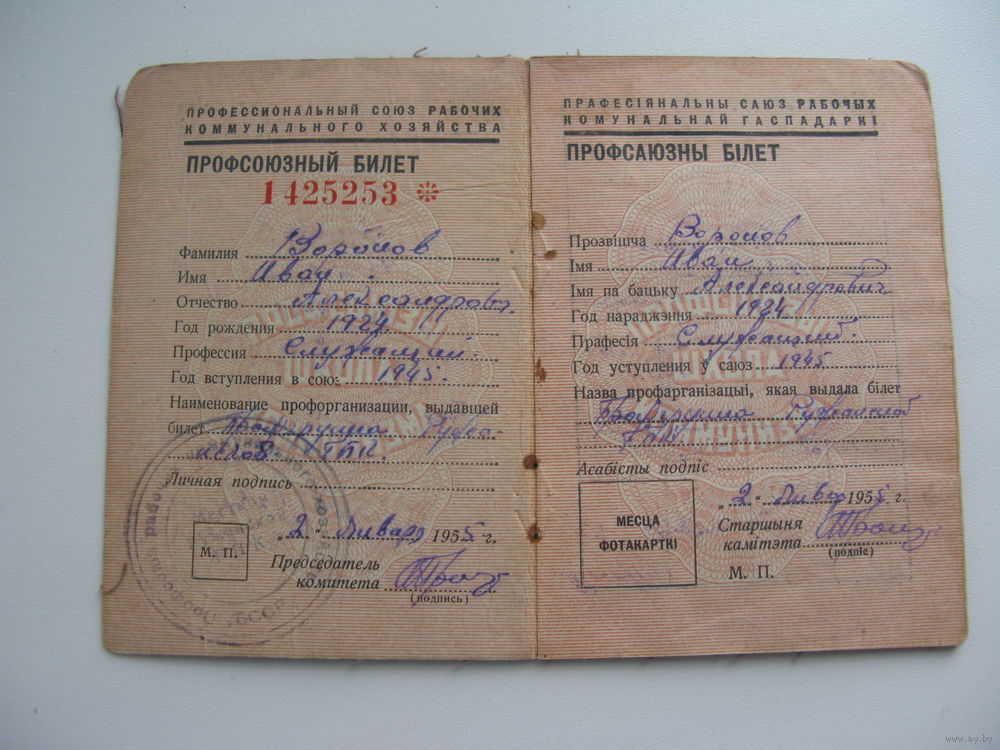 ПРОФЕССИОНАЛЬНЫЙ СОЮЗ РАБОЧИХ
КОММУНАЛЬНОГО ХОЗЯЙСТВА
ПРОФСОЮЗНЫЙ БИЛЕТ
1425253
Фамилия Воронов
Имя Иван
Отчество Александрович
Год рождения 1924
Профессия Служащий
Год вступления в союз 1945.
Наименование профорганизации, выдавшей
билет Профгруппа
Личная подпись
„2“ Января 1955 г.
М. П.
Председатель
комитета
(подпись)
ПРАФЕСІЯНАЛЬНЫ САЮЗ РАБОЧЫХ
КОМУНАЛЬНАЙ ГАСПАДАРКІ
ПРОФСАЮЗНЫ БІЛЕТ
Прозвішча Воронов
Імя Иван
Імя па бацьку Александрович
Год нараджэння 1924
Прафесія Служащий
Год уступлення ў саюз 1945
Назва профарганізацыі, якая выдала білет
Профгруппа Ружанской
Асабісты подпіс
МЕСЦА
ФОТАКАРТКІ
„2“ Январ 1955 г.
Старшыня
камітэта
(подпіс)
М. П.
www.ay.by